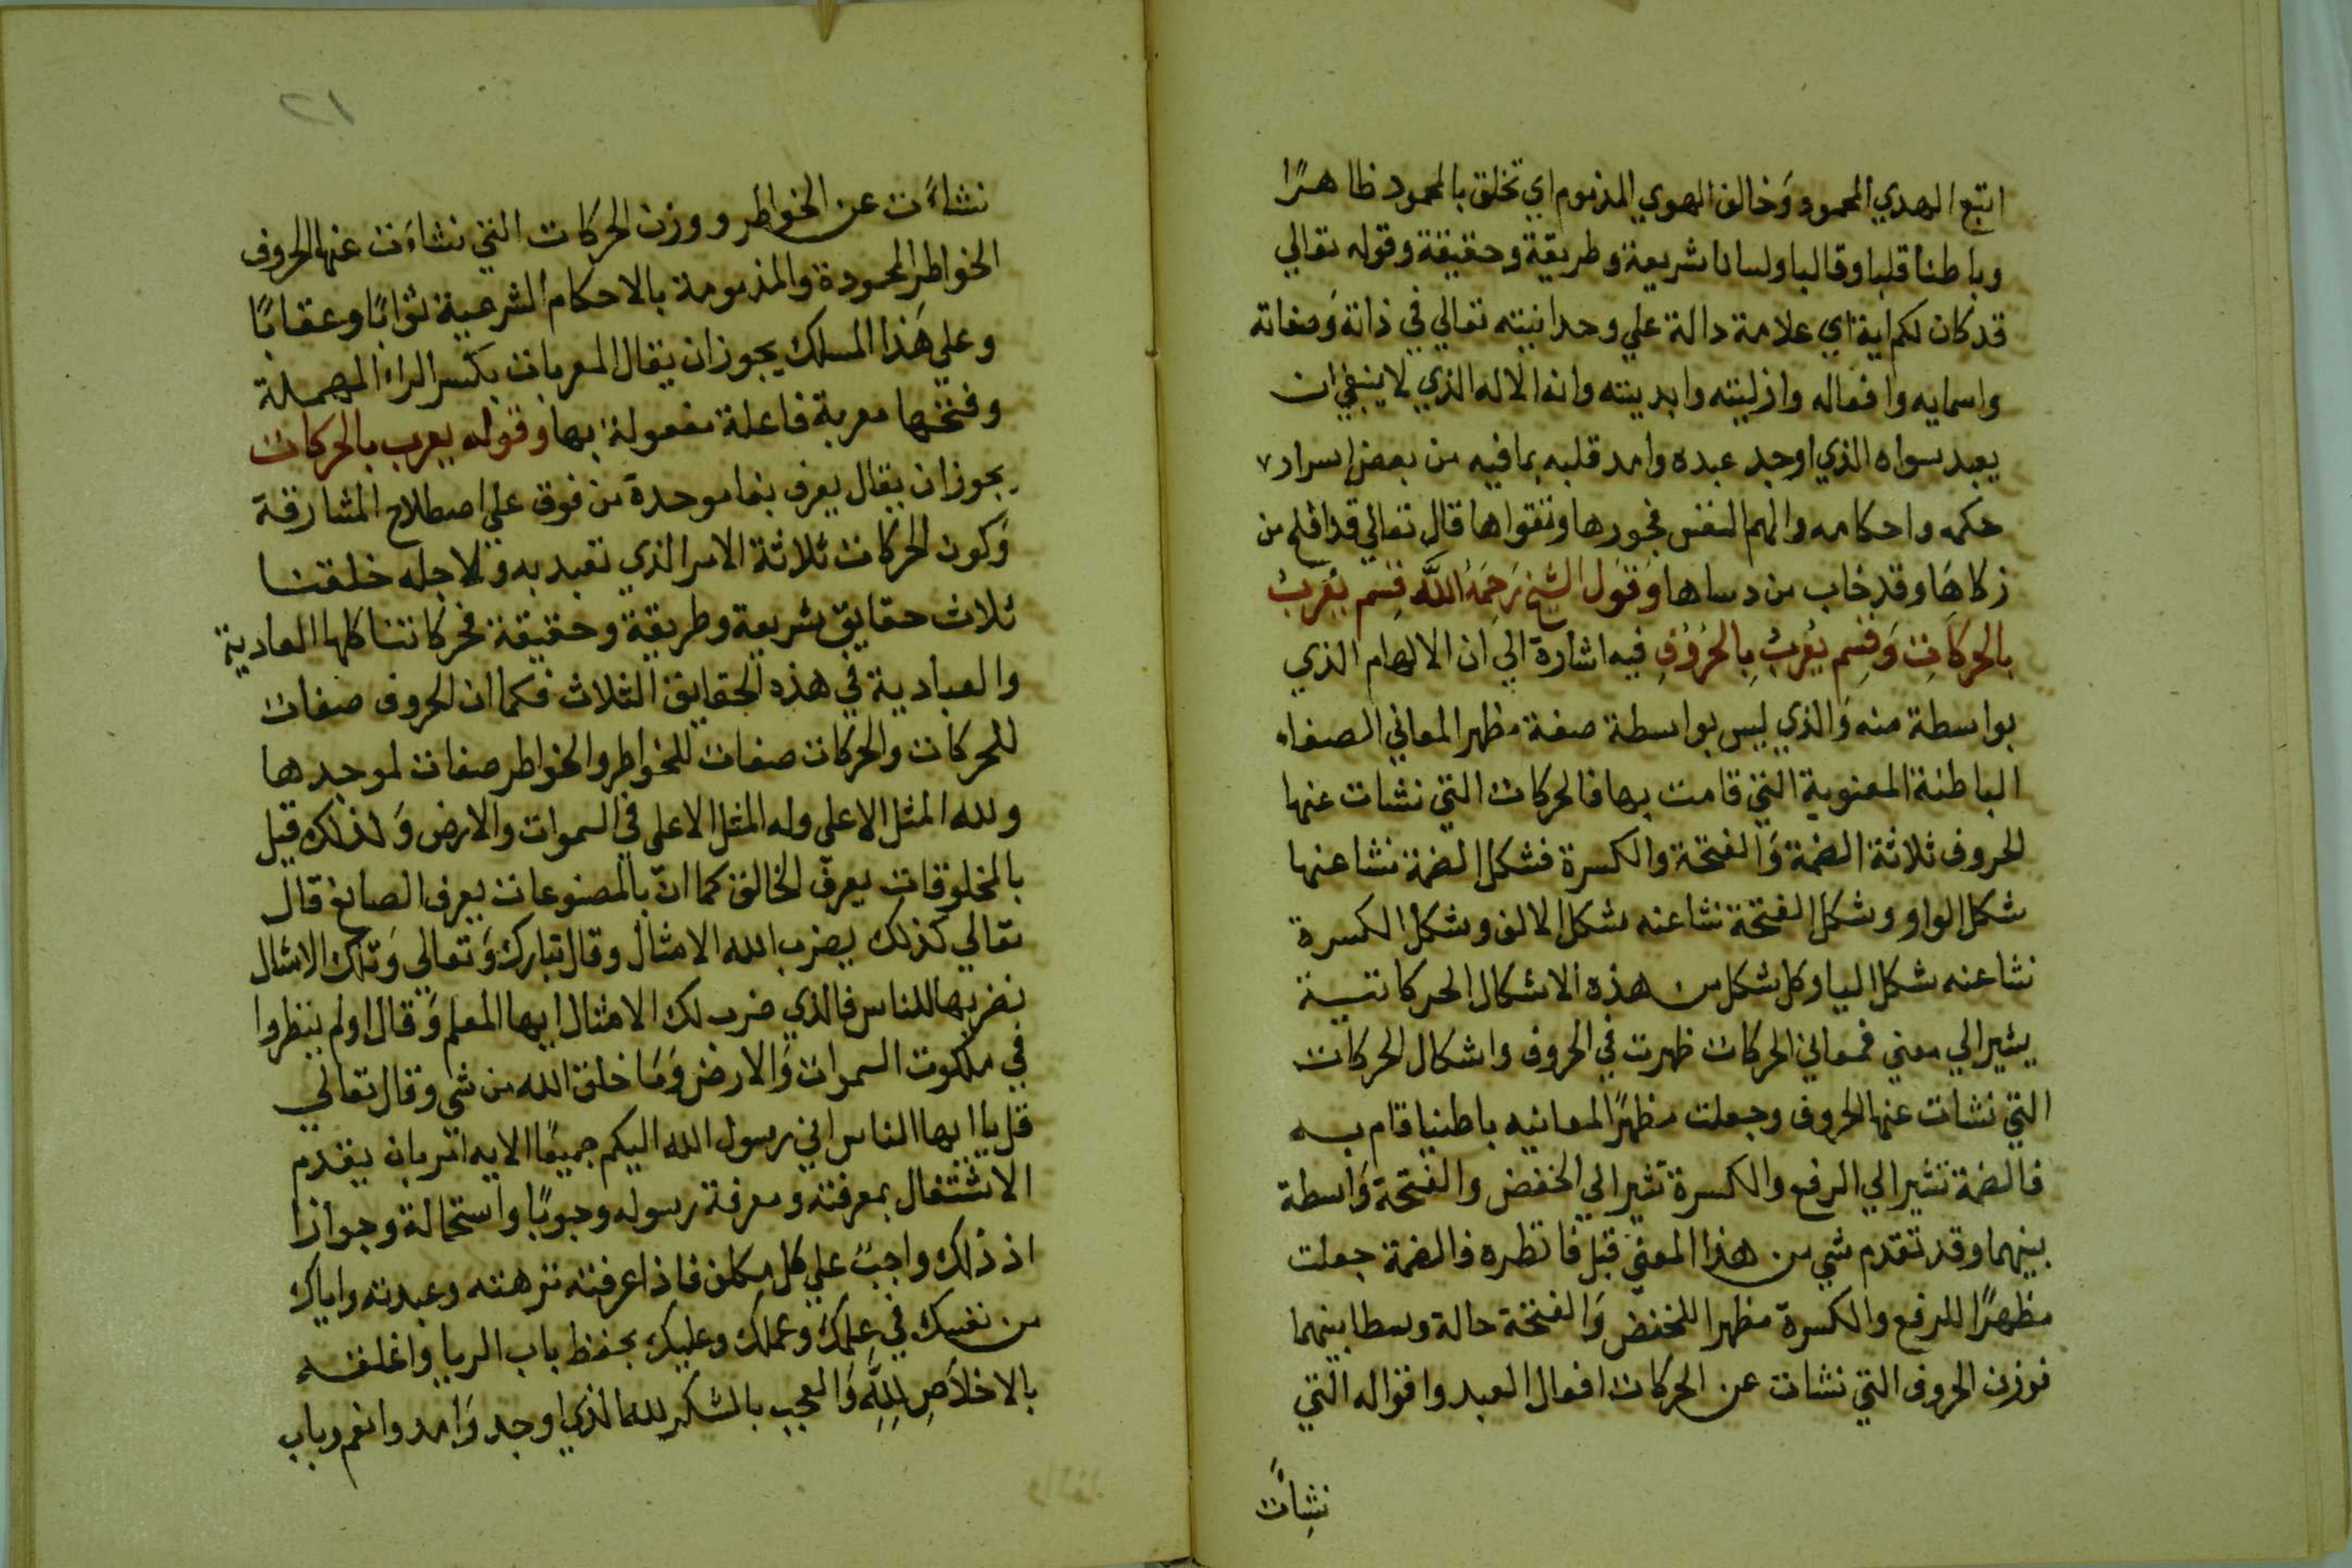 اتبع الهدي المحمود وَخالف الهوي المذموم اي تخلق بالمحمود ظاهرًا
وباطنا قلبا وقالبا ولسانا شريعة وطريقة وحقيقة وقوله تعالي
قد كان لكم اية اي علامة دالة علي وحدانيته تعالي في ذاته وَصفاته
واسمايه وافعاله وازليته وابديته وانه الاله الذي لا ينبغي ان
يعبد سواه الذي اوجد عبده وامد قلبه بما فيه من بعض اسرار
حكمه واحكامه والهم النفس فجورها وتقواها قال تعالي قد افلح من
زكاهَا وقد خاب من دساها وَقَول الشيخ رَحِمَهُ اللَّه قِسم يُعْربُ
بالحركَاتِ وَقِسِم يُعْربُ بِالحُرُوُفِ فيه اشارة الي ان الالهام الذي
بواسطة منه وَالذي ليس بواسطة صفة مظهر المعاني الصفاه
الباطنة المعنوية التي قامت بها فالحركات التي نشات عنها
الحروف ثلاثة الضمة وَالفتحة والكسرة فشكل الضمة نشا عنها
شكل الواو وشكل الفتحة نشا عنه شكل الالف وشكل الكسرة
نشا عنه شكل اليا وكل شكل من هذه الاشكال الحركاتية
يشير الي معني فمعاني الحركات ظهرت في الحروف واشكال الحركات
التي نشات عنها الحروف وجعلت مظهرًا لمعانيه باطنيا قام به
فالضمة تشير الي الرفع والكسرة تشير الي الخفض والفتحة وَاسطة
بينهما وقد تقدم شي من هذا المعني قبل فانظره فالضمة جعلت
مظهرًا للرفع والكسرة مظهرا للخفض وَالفتحة حالة وسطا بينهما
فوزن الحروف التي نشات عن الحركات افعال العبد واقواله التي
نشِأَت
١٢
نشاءَت عن الخواطر ووزن الحركات التي نشاءَت عنها الحروف
الخواطر المحمودة والمذمومة بالاحكام الشرعية ثوابًا وعقابًا
وعلي هَذا المسلك يجوز ان يقال المعربات بكسر الراء المهملة
وفتحها معربة فاعلة مفعولة بها وقوله يعرب بالحركات
يجوز ان يقال يعرف بفا موحدة من فوق علي اصطلاح المشارقة
وَكون الحركات ثلاثة الامر الذي تعبد به ولاجله خلقنا
ثلاث حقايق شريعة وطريقة وحقيقة فحركاتنا كلها العادية
والعبادية في هذه الحقايق الثلاث فكما ان الحروف صفات
للحركات والحركات صفات للخواطر والخواطر صفات لموجدها
ولله المثل الاعلي وله المثل الاعلي في السموات والارض وَلذلك قيل
بالمخلوقات يعرف الخالق كما انّ بالمصنوعات يعرف الصانع قال
تعالي كذلك يضرب الله الامثال وقال تبارك وَتعالي وَتلك الامثال
نضربها للناس فالذي ضرب لك الامثال ايها المعلم وَقال اولم ينظروا
في ملكوت السموات وَالارض وَمَا خلق الله من شي وقال تعالي
قل يا ايها الناس اني رسول الله اليكم جميعًا الايه امر بان يقدم
الاشتغال بمعرفته ومعرفة رسوله وجوبًا واستحالة وجوازا
اذ ذلك واجبٌ علي كل مكلف فاذا عرفته نزهته وعبدته واياك
من نفسك في عِلمكَ وَعملك وعليك بحفظ باب الريا واغلقه
بالاخلاَصِ لِلهِ وَالعجب بالشكر لله الذي اوجد وَامد وانعم وباب